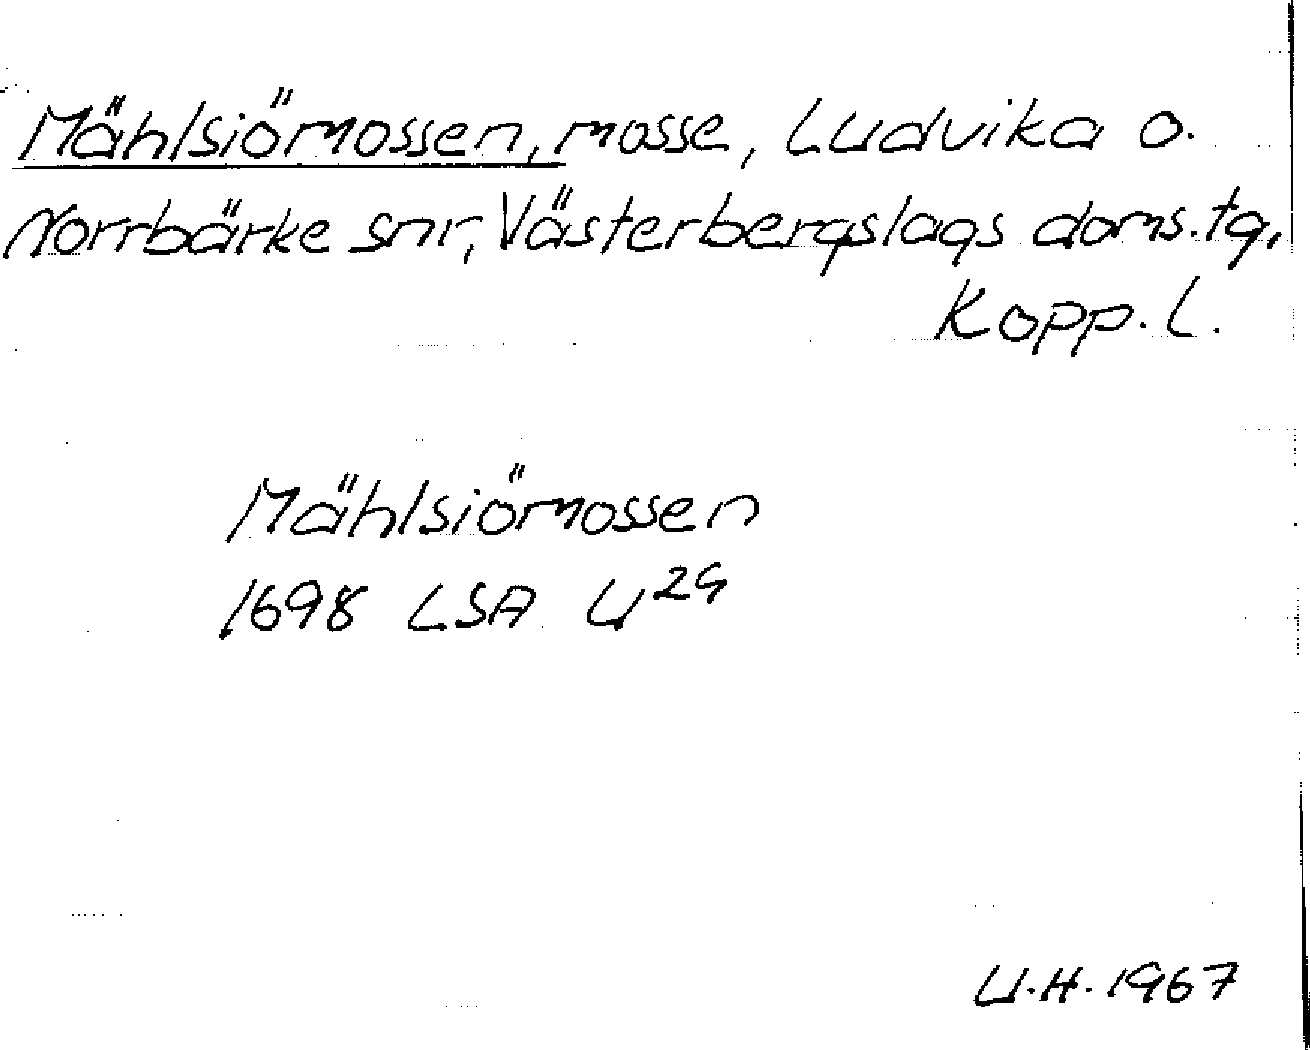 Mählsiömossen, mosse, Ludvika o.
Norrbärke snr, Västerbergslags doms. tg,
Kopp. l.
Mählsiömossen
1698 LSA U²⁹
U.H. 1967